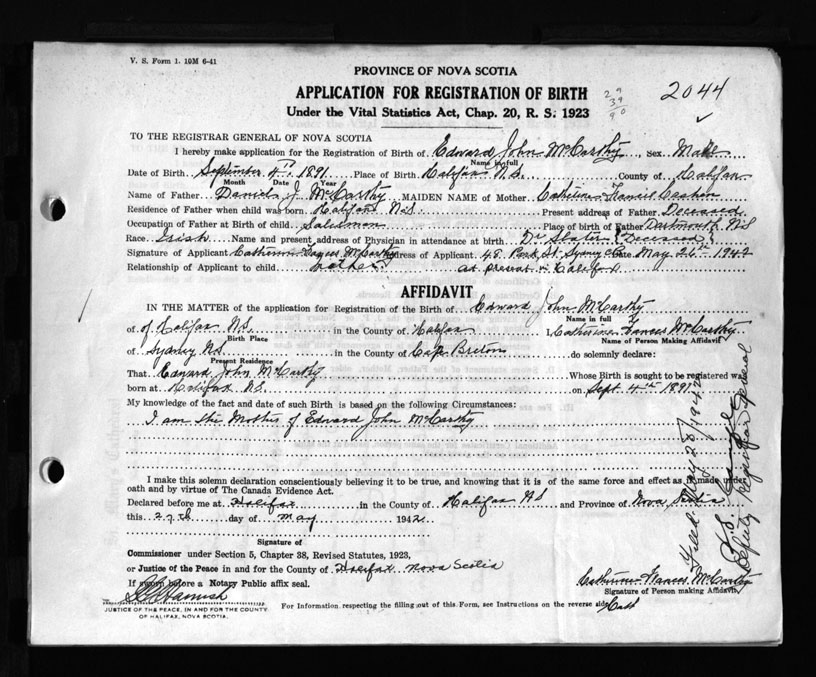 V. S. Form 1. 10M 6-41
PROVINCE OF NOVA SCOTIA
APPLICATION FOR REGISTRATION OF BIRTH
29
39
90
2044
Under the Vital Statistics Act, Chap. 20, R. S. 1923
TO THE REGISTRAR GENERAL OF NOVA SCOTIA
I hereby make application for the Registration of Birth of Edward John McCarthy, Sex Male
Name in full
Date of Birth September 4th 1891 Place of Birth Halifax N.S. County of Halifax
Month Date Year
Name of Father Daniel J. McCarthy MAIDEN NAME of Mother Catherine Cashen
Residence of Father when child was born Halifax N.S. Present address of Father Deceased
Occupation of Father at Birth of child Salesman Place of birth of Father Dartmouth N.S
Race Irish Name and present address of Physician in attendance at birth Dr Slater (Deceased)
Signature of Applicant Catherine Frances McCarthy Address of Applicant 48 Park St. Sydney Date May 26th 1942
Relationship of Applicant to child mother at present in Halifax
AFFIDAVIT
IN THE MATTER of the application for Registration of the Birth of Edward John McCarthy
Name in full
of of Halifax N.S. in the County of Halifax I, Catherine Frances McCarthy
Birth Place Name of Person Making Affidavit
of Sydney N.S. in the County of Cape Breton do solemnly declare:
Present Residence
That Edward John McCarthy Whose Birth is sought to be registered was
born at Halifax N.S. on Sept 4th 1891
My knowledge of the fact and date of such Birth is based on the following Circumstances:
I am the Mother of Edward John McCarthy
I make this solemn declaration conscientiously believing it to be true, and knowing that it is of the same force and effect as if made under
oath and by virtue of The Canada Evidence Act.
Declared before me at Halifax in the County of Halifax N.S and Province of Nova Scotia
this 27th day of May 1942
Signature of
Commissioner under Section 5, Chapter 38, Revised Statutes, 1923,
or Justice of the Peace in and for the County of Halifax Nova Scotia
If sworn before a Notary Public affix seal.
Catherine Frances McCarthy
Signature of Person making Affidavit
JUSTICE OF THE PEACE, IN AND FOR THE COUNTY
OF HALIFAX, NOVA SCOTIA.
For Information respecting the filling out of this Form, see Instructions on the reverse side
Filed May 28/1942
Deputy Registrar General